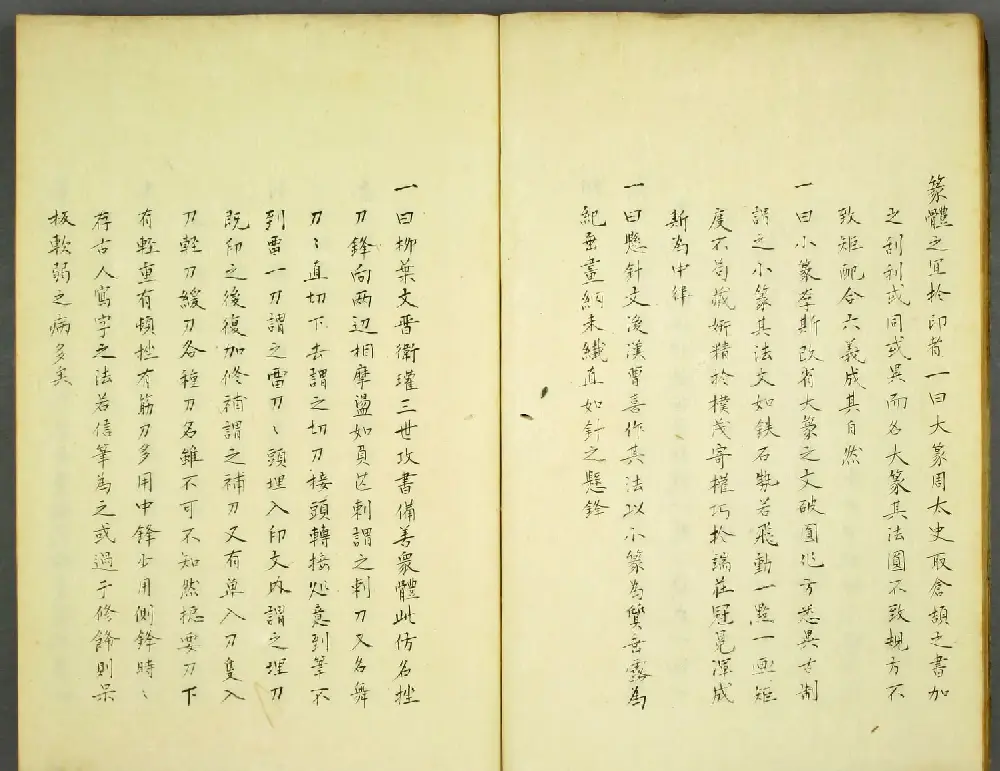 篆體之宜於印者一曰大篆周太史取倉頡之書加
之刮利或同或異而名大篆其法圓不致規方不
致矩配合六義成其自然
一曰小篆李斯改省大篆之文破圓作方悉異古制
謂之小篆其法文如鉄石勢若飛動一點一画矩
度不苟藏妍精於樸茂寄權巧於端莊冠冕渾成
斯為中律
一曰懸針文後漢曹喜作其法以小篆為質垂露為
紀垂畫纖末纖直如針之懸鋒
一曰柳葉文晋衛瓘三世攻書備善衆體此仿名挫
刀鋒向两辺相摩盪如負芒刺謂之刺刀又名舞
刀〻直切下去謂之切刀接頭轉接処意到筆不
到雷一刀謂之雷刀〻頭埋入印文内謂之埋刀
既印之後復加修補謂之補刀又有单入刀隻入
刀輕刀緩刀各種刀名雖不可不知然摠要刀下
有輕重有頓挫有筋刀多用中鋒少用側鋒時〻
存古人寫字之法若信筆為之或過于修餙則呆
板軟弱之病多矣